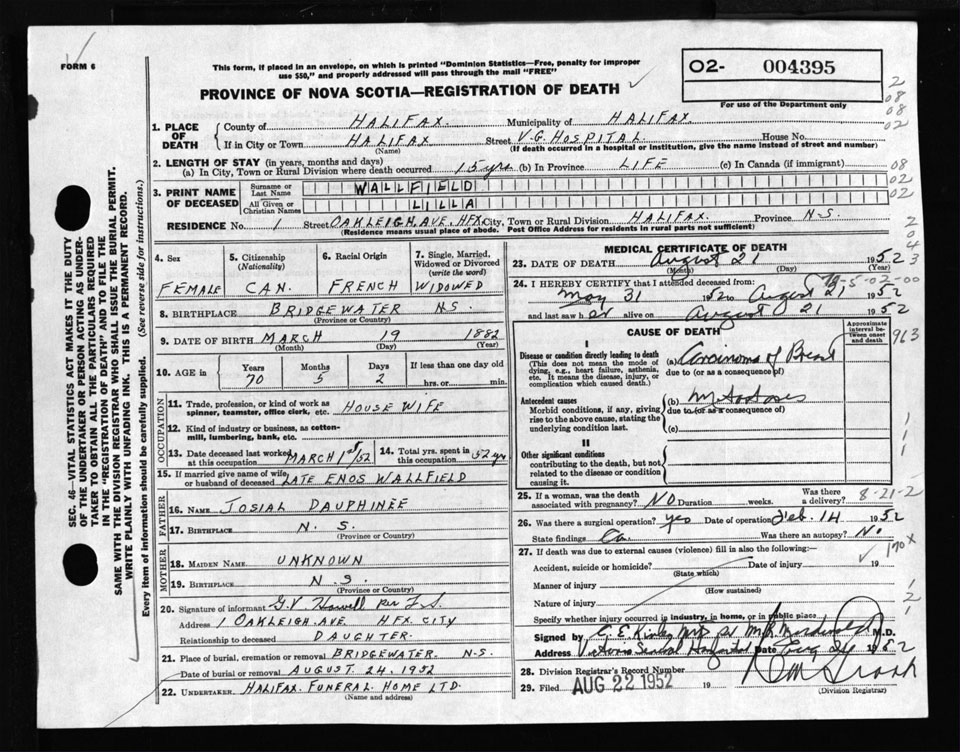 FORM 6
This form, if placed in an envelope, on which is printed "Dominion Statistics—Free, penalty for improper
use $50," and properly addressed will pass through the mail "FREE"
PROVINCE OF NOVA SCOTIA—REGISTRATION OF DEATH
O2- 004395
For use of the Department only
2
08
08
02
1. PLACE OF DEATH
County of HALIFAX. Municipality of HALIFAX
If in City or Town HALIFAX Street V.G. HOSPITAL House No.
(Name) (If death occurred in a hospital or institution, give the name instead of street and number)
2. LENGTH OF STAY (in years, months and days)
(a) In City, Town or Rural Division where death occurred 15 yrs (b) In Province LIFE (c) In Canada (if immigrant)
08
3. PRINT NAME OF DECEASED
Surname or Last Name WALLFIELD
All Given or Christian Names LILLA
02
RESIDENCE No. 1 Street OAKLEIGH AVE. HFX City, Town or Rural Division HALIFAX. Province N-S.
(Residence means usual place of abode. Post Office Address for residents in rural parts not sufficient)
SEC. 46—VITAL STATISTICS ACT MAKES IT THE DUTY
OF THE UNDERTAKER OR PERSON ACTING AS UNDER-
TAKER TO OBTAIN ALL THE PARTICULARS REQUIRED
IN THE "REGISTRATION OF DEATH" AND TO FILE THE
SAME WITH THE DIVISION REGISTRAR WHO SHALL ISSUE THE BURIAL PERMIT.
WRITE PLAINLY WITH UNFADING INK. THIS IS A PERMANENT RECORD.
Every item of information should be carefully supplied. (See reverse side for instructions.)
4. Sex
FEMALE
5. Citizenship
(Nationality)
CAN.
6. Racial Origin
FRENCH
7. Single, Married,
Widowed or Divorced
(write the word)
WIDOWED
8. BIRTHPLACE BRIDGEWATER N.S.
(Province or Country)
9. DATE OF BIRTH MARCH 19 1882
(Month) (Day) (Year)
10. AGE in
Years 70 Months 5 Days 2
If less than one day old
hrs. or min.
OCCUPATION
11. Trade, profession, or kind of work as
spinner, teamster, office clerk, etc. HOUSE WIFE
12. Kind of industry or business, as cotton-
mill, lumbering, bank, etc.
13. Date deceased last worked
at this occupation MARCH 1st/52
14. Total yrs. spent in
this occupation 52 yrs
15. If married give name of wife
or husband of deceased LATE ENOS WALLFIELD
FATHER
16. NAME JOSIAL DAUPHINEE
17. BIRTHPLACE N. S.
(Province or Country)
MOTHER
18. MAIDEN NAME UNKNOWN
19. BIRTHPLACE N. S.
(Province or Country)
20. Signature of informant G.V. Howell per
Address 1 OAKLEIGH AVE HFX CITY
Relationship to deceased DAUGHTER.
21. Place of burial, cremation or removal BRIDGEWATER N.S.
Date of burial or removal AUGUST 24. 1952
22. UNDERTAKER HALIFAX FUNERAL HOME LTD.
MEDICAL CERTIFICATE OF DEATH
23. DATE OF DEATH August 21 1952
(Month) (Day) (Year)
24. I HEREBY CERTIFY that I attended deceased from:
May 31 1952 to August 21 1952
and last saw her alive on August 21 1952
CAUSE OF DEATH
Approximate interval between onset and death
963
I
Disease or condition directly leading to death
(This does not mean the mode of
dying, e.g., heart failure, asthenia,
etc. It means the disease, injury, or
complication which caused death.)
(a) Carcinoma of Breast
due to (or as a consequence of)
Antecedent causes
Morbid conditions, if any, giving
rise to the above cause, stating the
underlying condition last.
(b)
due to (or as a consequence of)
(c)
II
Other significant conditions
contributing to the death, but not
related to the disease or condition
causing it.
25. If a woman, was the death
associated with pregnancy? NO Duration weeks. Was there
a delivery? 8-21-2
26. Was there a surgical operation? yes Date of operation Feb. 14 1952
State findings Ca. Was there an autopsy? No
27. If death was due to external causes (violence) fill in also the following:— 170 X
Accident, suicide or homicide? Date of injury 19
(State which)
Manner of injury
(How sustained)
Nature of injury
Specify whether injury occurred in industry, in home, or in public place
Signed by M.D.
Address Victoria General Hospital Date Aug 1952
28. Division Registrar's Record Number
29. Filed AUG 22 1952 19
(Division Registrar)